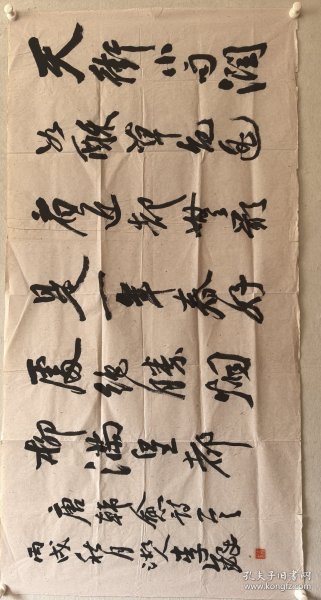 天街小雨潤
如酥草色遥
看近却無最
是一年春好
處絕勝烟
柳滿皇都
唐韓愈詩
丙戌秋月
孔夫子旧书网